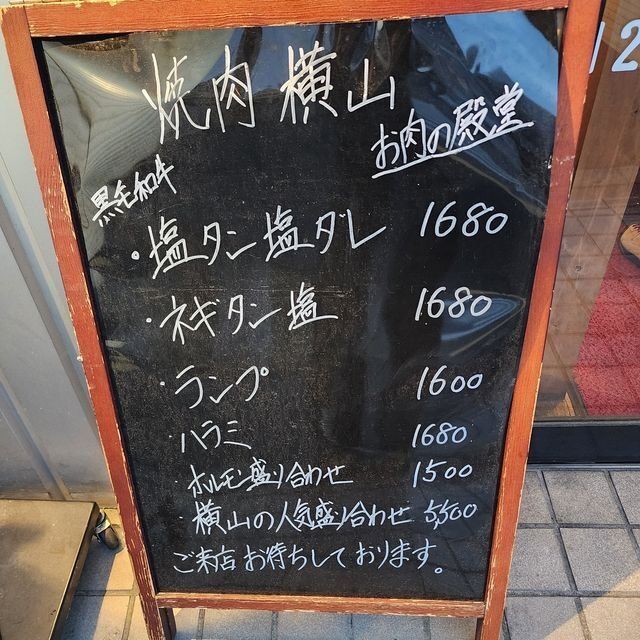 焼肉 横山
お肉の殿堂
黒毛和牛
・塩タン塩ダレ 1680
・ネギタン塩 1680
・ランプ 1600
・ハラミ 1680
・ホルモン盛り合わせ 1500
・横山の人気盛り合わせ 5,500
ご来店お待ちしております。
12